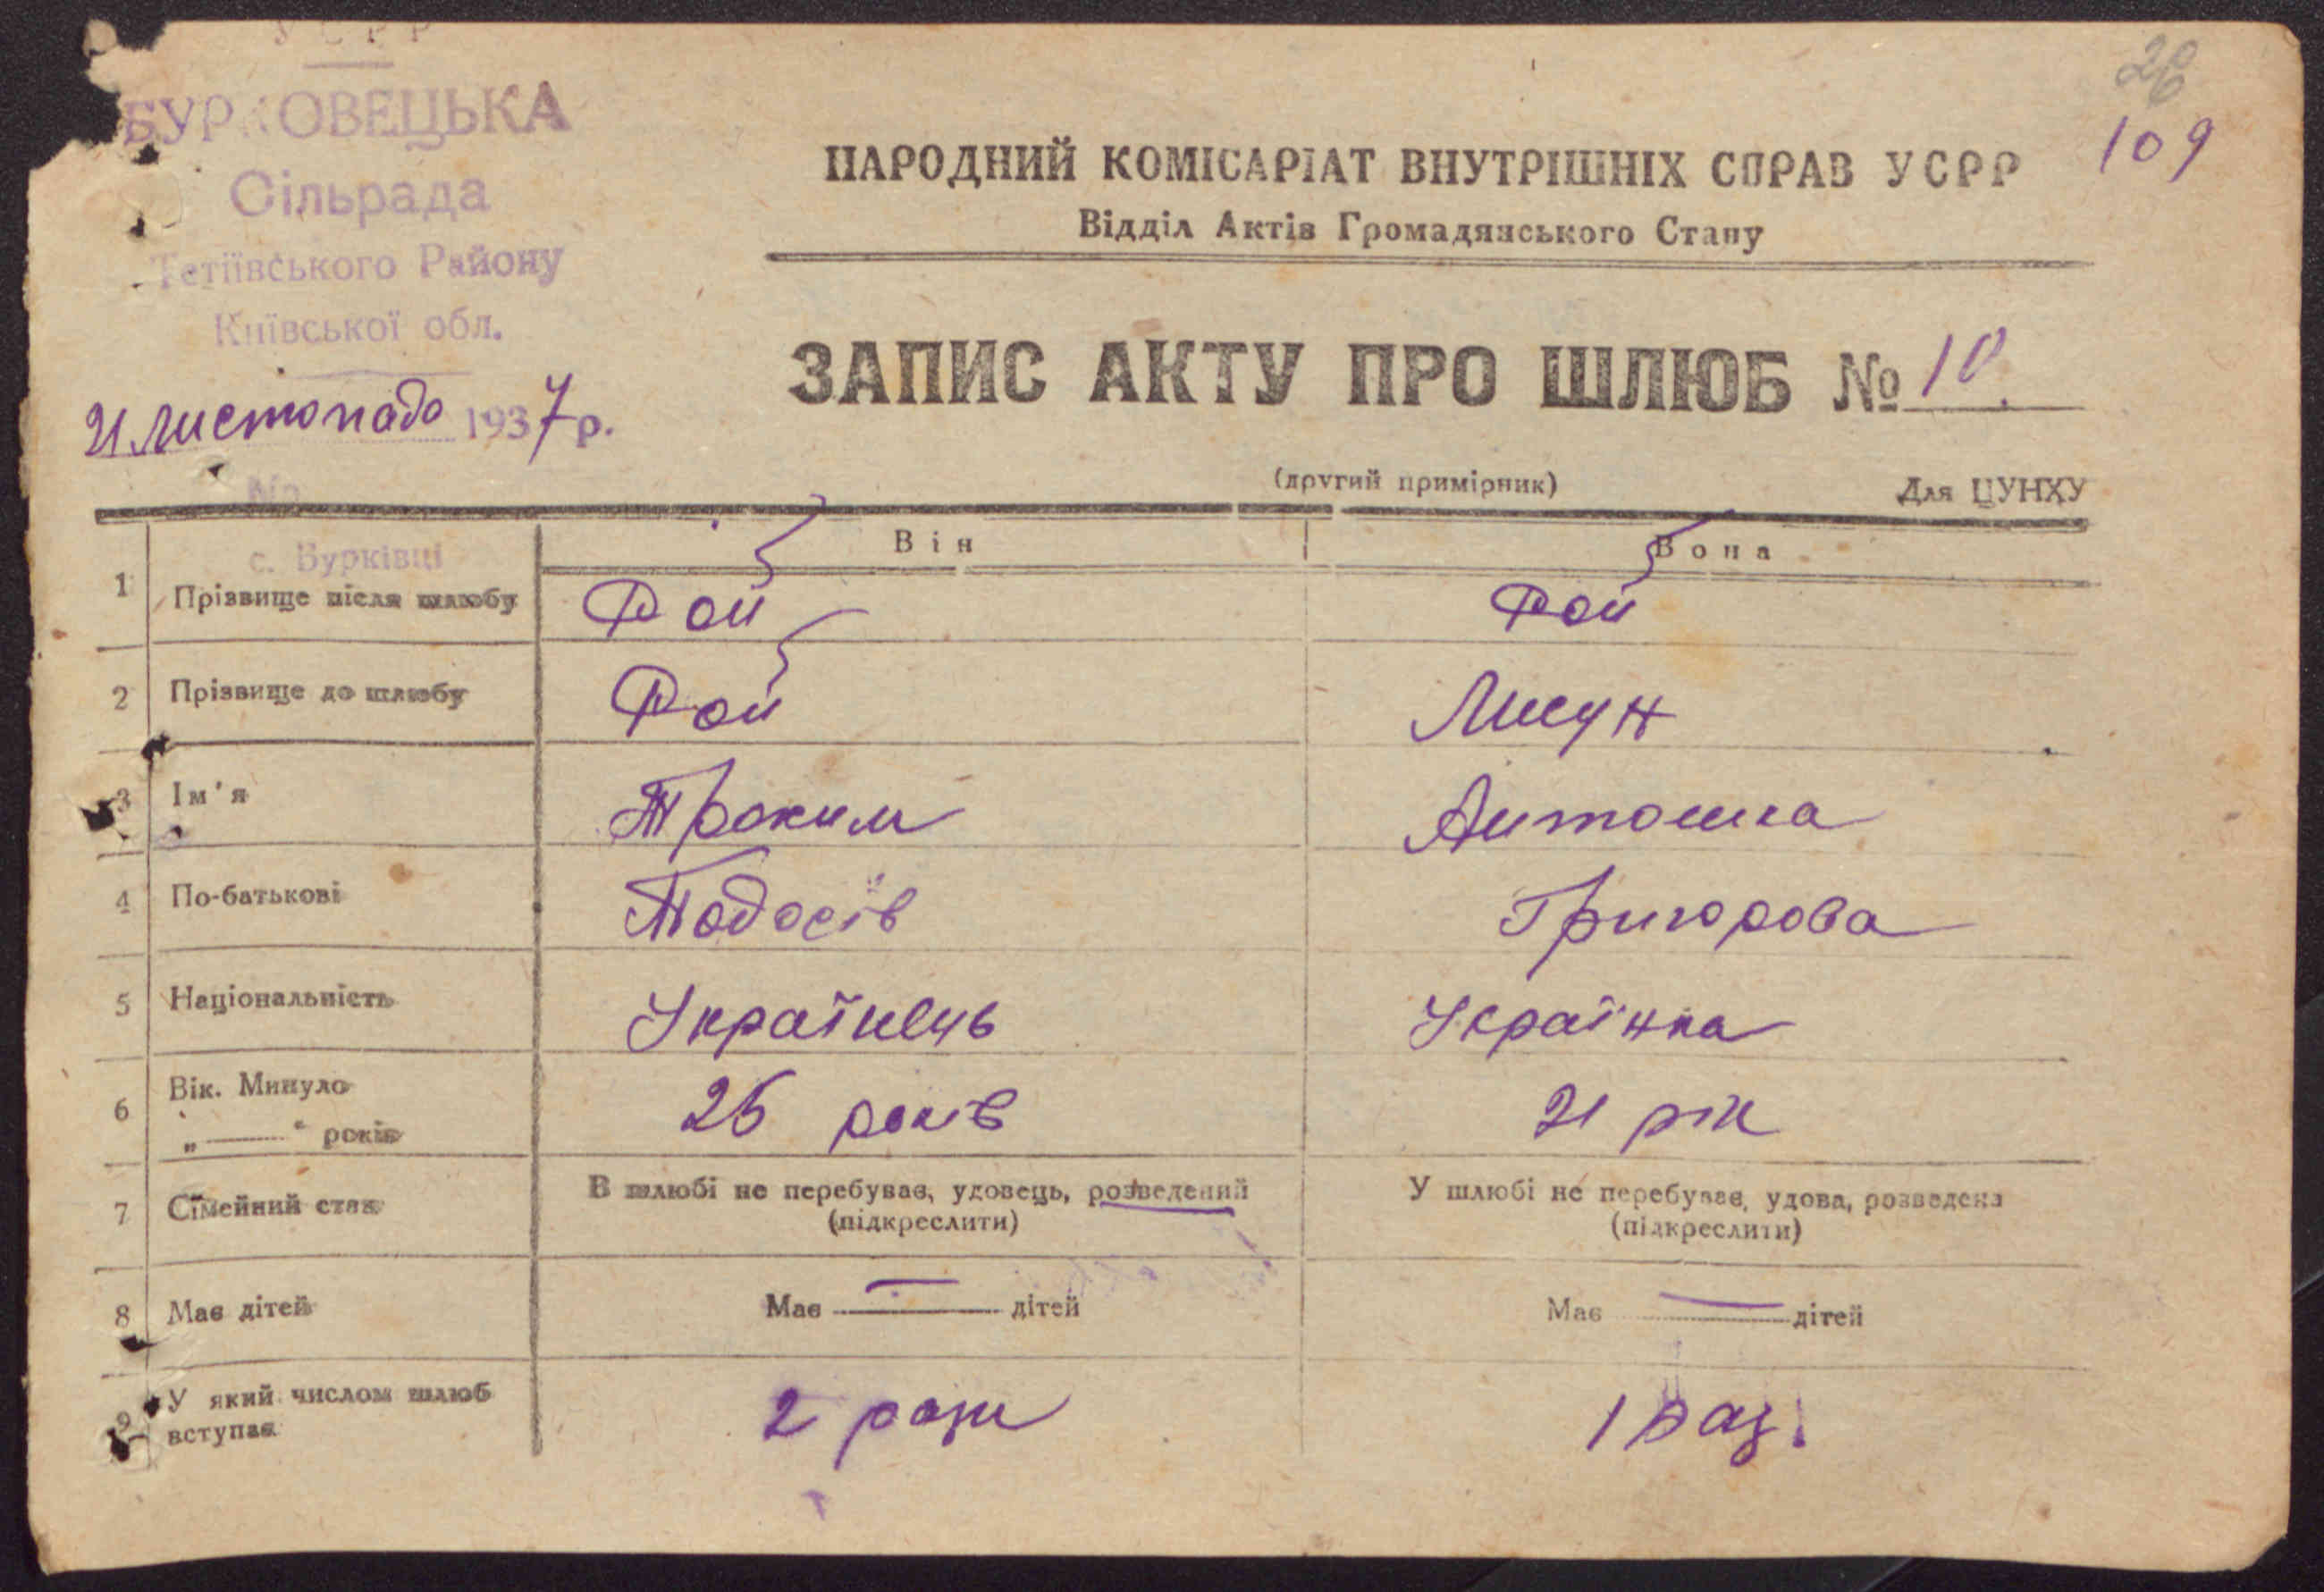 УСРР
БУРКОВЕЦЬКА
Сільрада
Тетіївського Району
Київської обл.
21 Листопада 1937 р.
№
с. Бурківці
26
109
НАРОДНИЙ КОМІСАРІАТ ВНУТРІШНІХ СПРАВ УСРР
Відділ Актів Громадянського Стану
ЗАПИС АКТУ ПРО ШЛЮБ № 10.
(другий примірник) Для ЦУНХУ
Він Вона
1 Прізвище після шлюбу Рой Рой
2 Прізвище до шлюбу Рой Лисун
3 Ім'я Троким Антошка
4 По-батькові Тодосів Григорова
5 Національність Українець Українка
6 Вік. Минуло
„ — “ років 26 років 21 рік
7 Сімейний стан В шлюбі не перебуває, удовець, розведений У шлюбі не перебуває, удова, розведена
(підкреслити) (підкреслити)
8 Має дітей Має — дітей Має — дітей
9 У який числом шлюб
вступає 2 рази 1 раз.